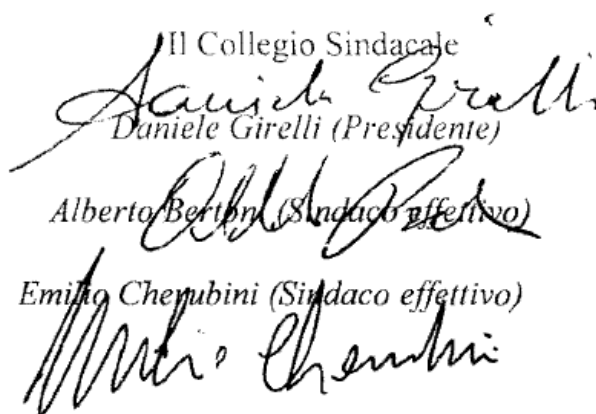 Il Collegio Sindacale
Daniele Girelli
Daniele Girelli (Presidente)
Alberto Bertoni (Sindaco effettivo)
Emilio Cherubini (Sindaco effettivo)
Emilio Cherubini